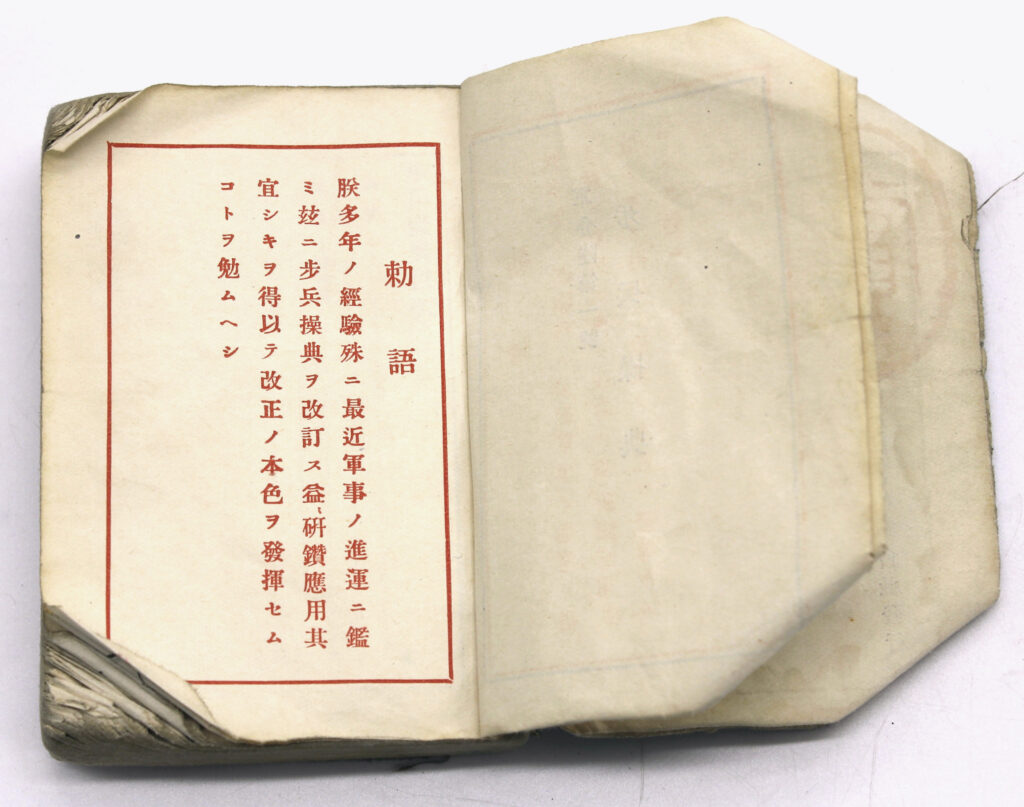 勅語
朕多年ノ經驗殊ニ最近軍事ノ進運ニ鑑
ミ玆ニ步兵操典ヲ改訂ス益〻硏鑽應用其
宜シキヲ得以テ改正ノ本色ヲ發揮セム
コトヲ勉ムヘシ